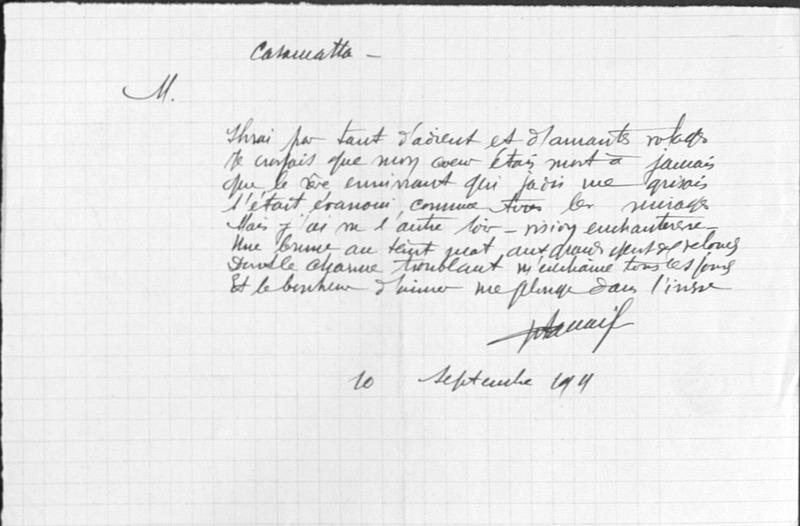 Casamatta -
M.
par tant d'adieux et d'amantes volages
Je croyais que mon coeur était mort à jamais
que le rêve ennivrant qui jadis me grisait
s'était évanoui comme tous les mirages
Mais j'ai vu l'autre soir - vision enchanteresse -
Une brune au teint mat aux grands yeux de velours
Dont le charme troublant m'enchaîne tous les jours
Et le bonheur d'aimer me plonge dans l'ivresse
10 septembre 1911